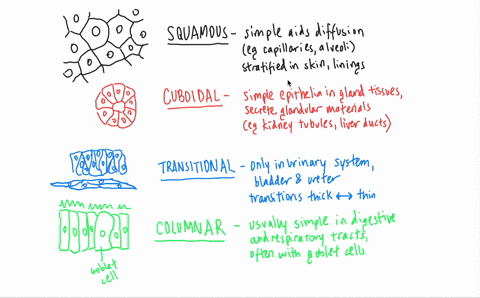 SQUAMOUS - simple aids diffusion
(eg capillaries, alveoli)
stratified in skin, linings
CUBOIDAL - Simple epithelia in gland tissues,
secrete glandular materials
(eg kidney tubules, liver ducts)
TRANSITIONAL - Only in urinary system,
bladder & ureter
transitions thick ↔ thin
COLUMNAR - usually simple in digestive
and respiratory tracts,
often with goblet cells
goblet
cell